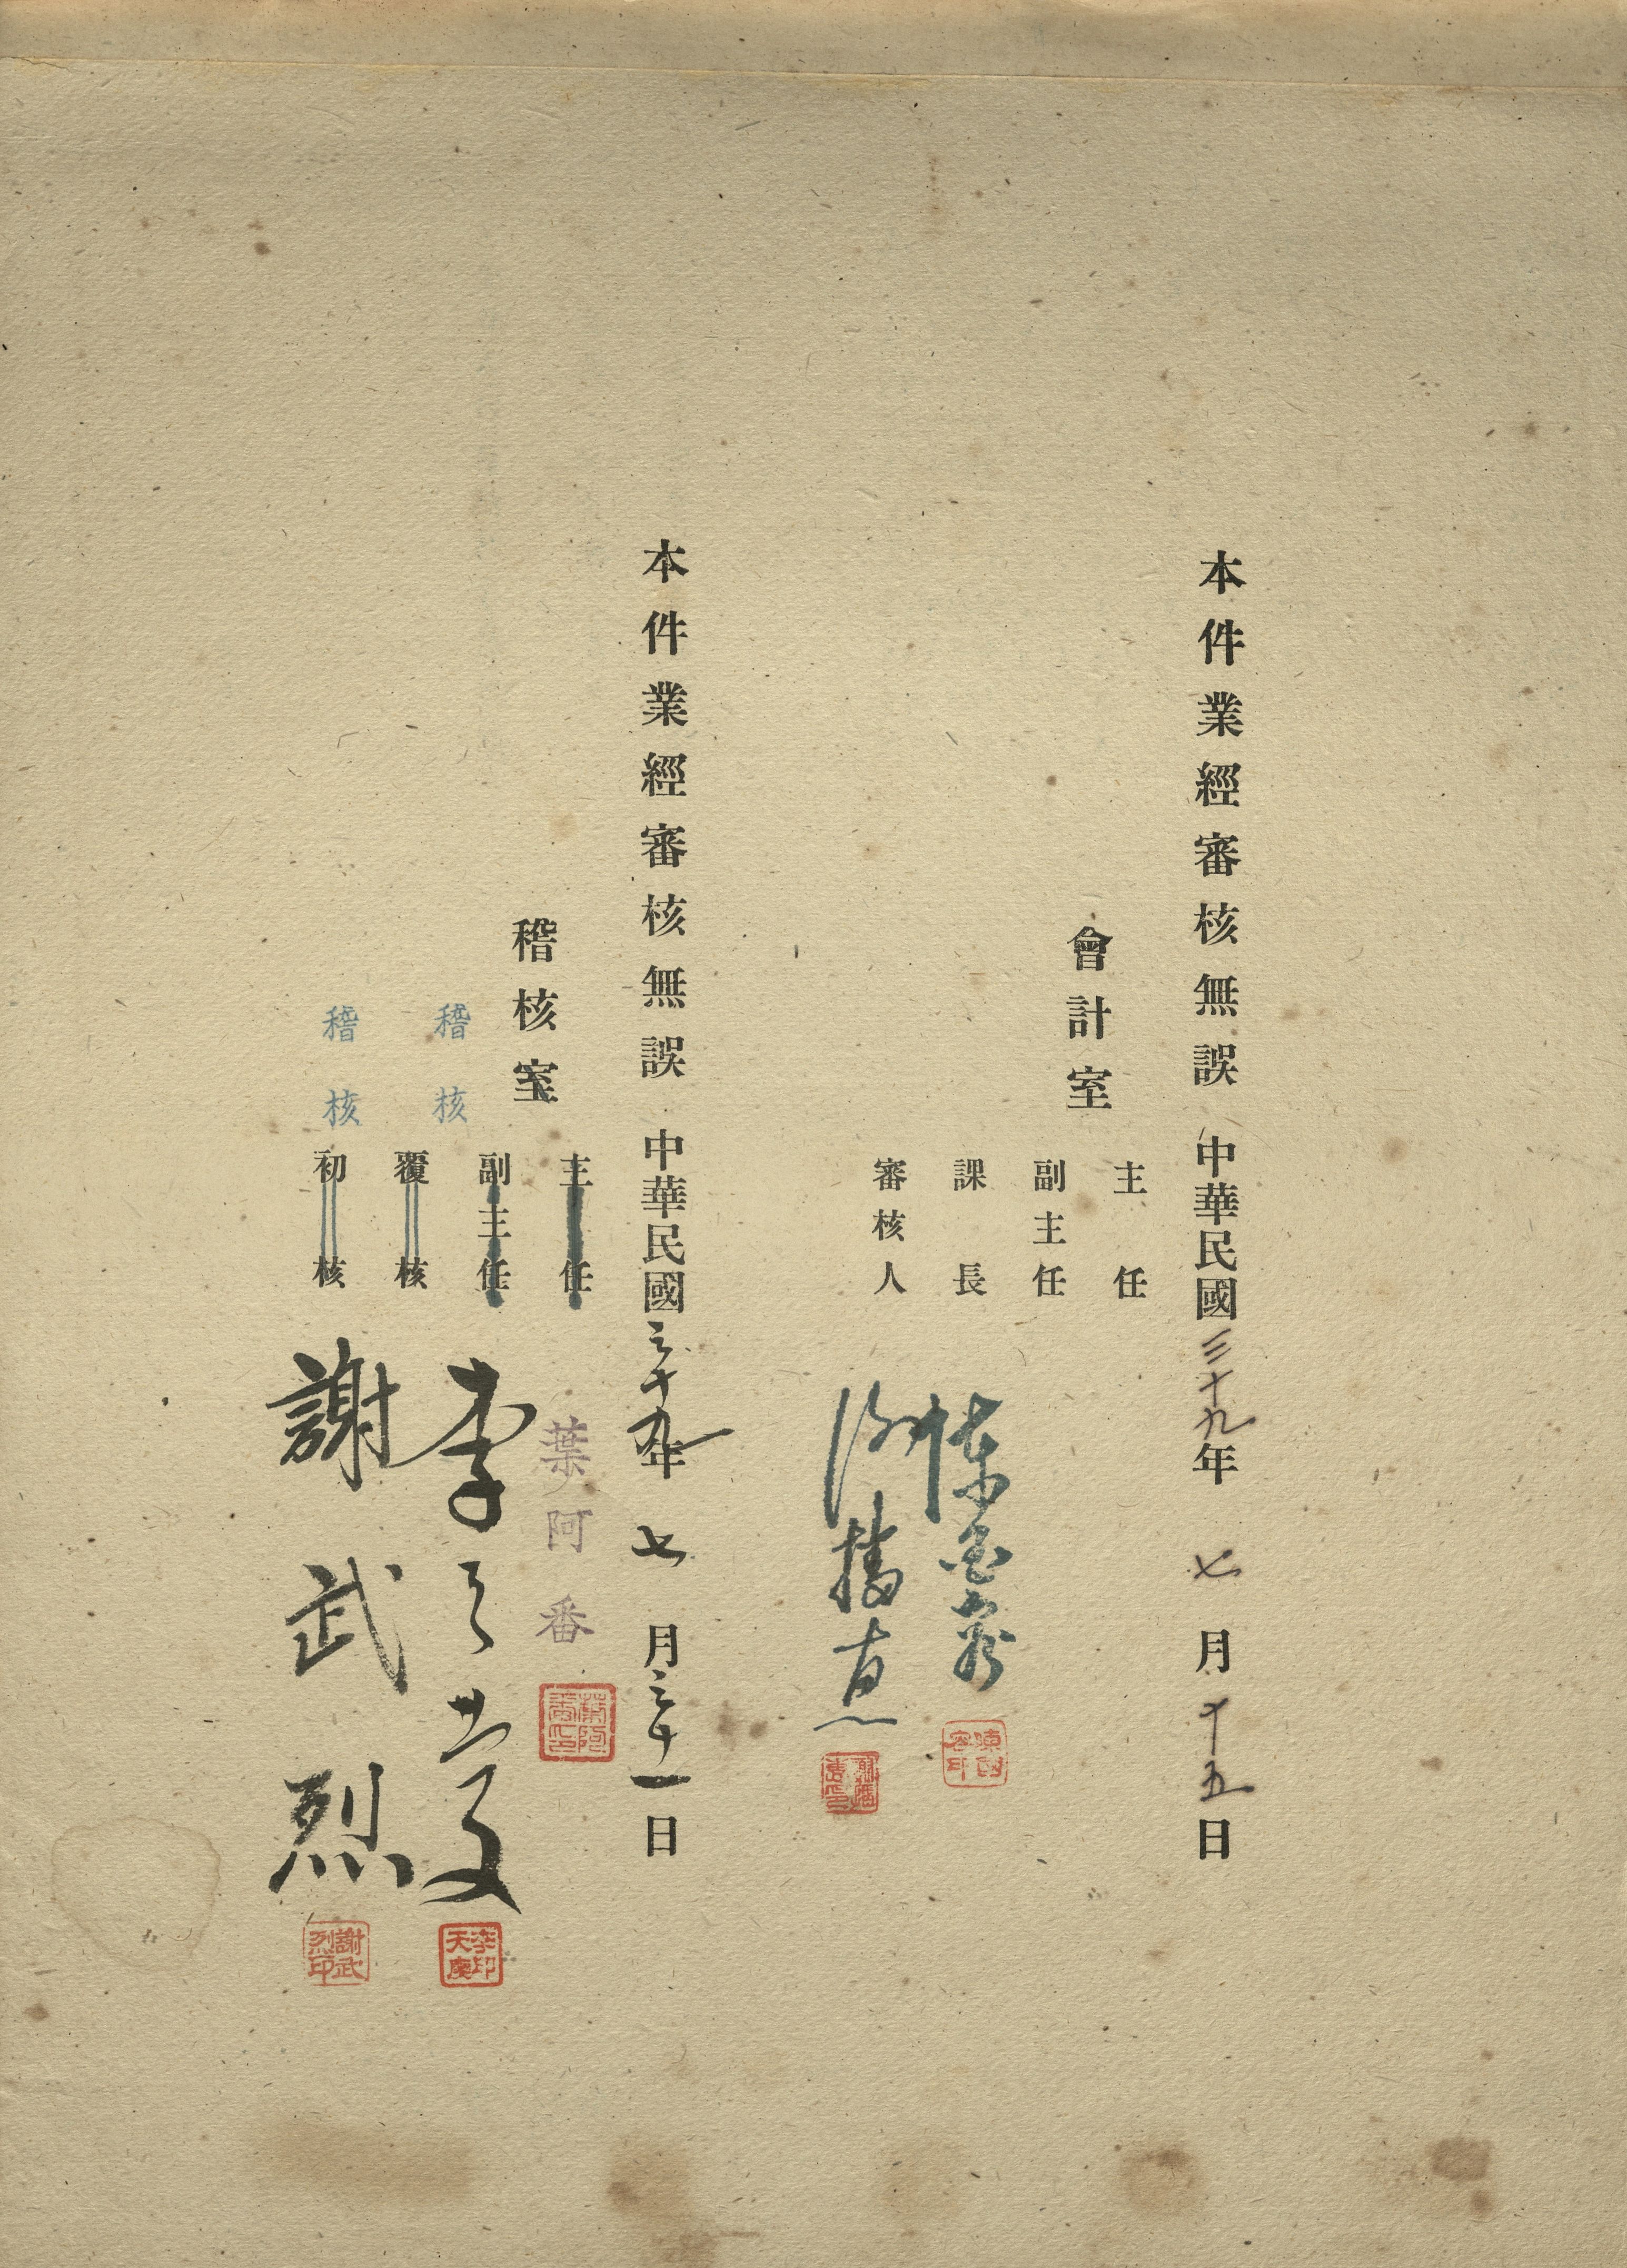 本件業經審核無誤 中華民國三十九年 七 月 十五 日
會計室
主任
副主任
課長
審核人
本件業經審核無誤 中華民國三十九年 七 月三十一日
稽核室
主任
副主任
覆核
初核
稽核
稽核
葉阿番
李
謝武烈
李印天慶
謝武烈印